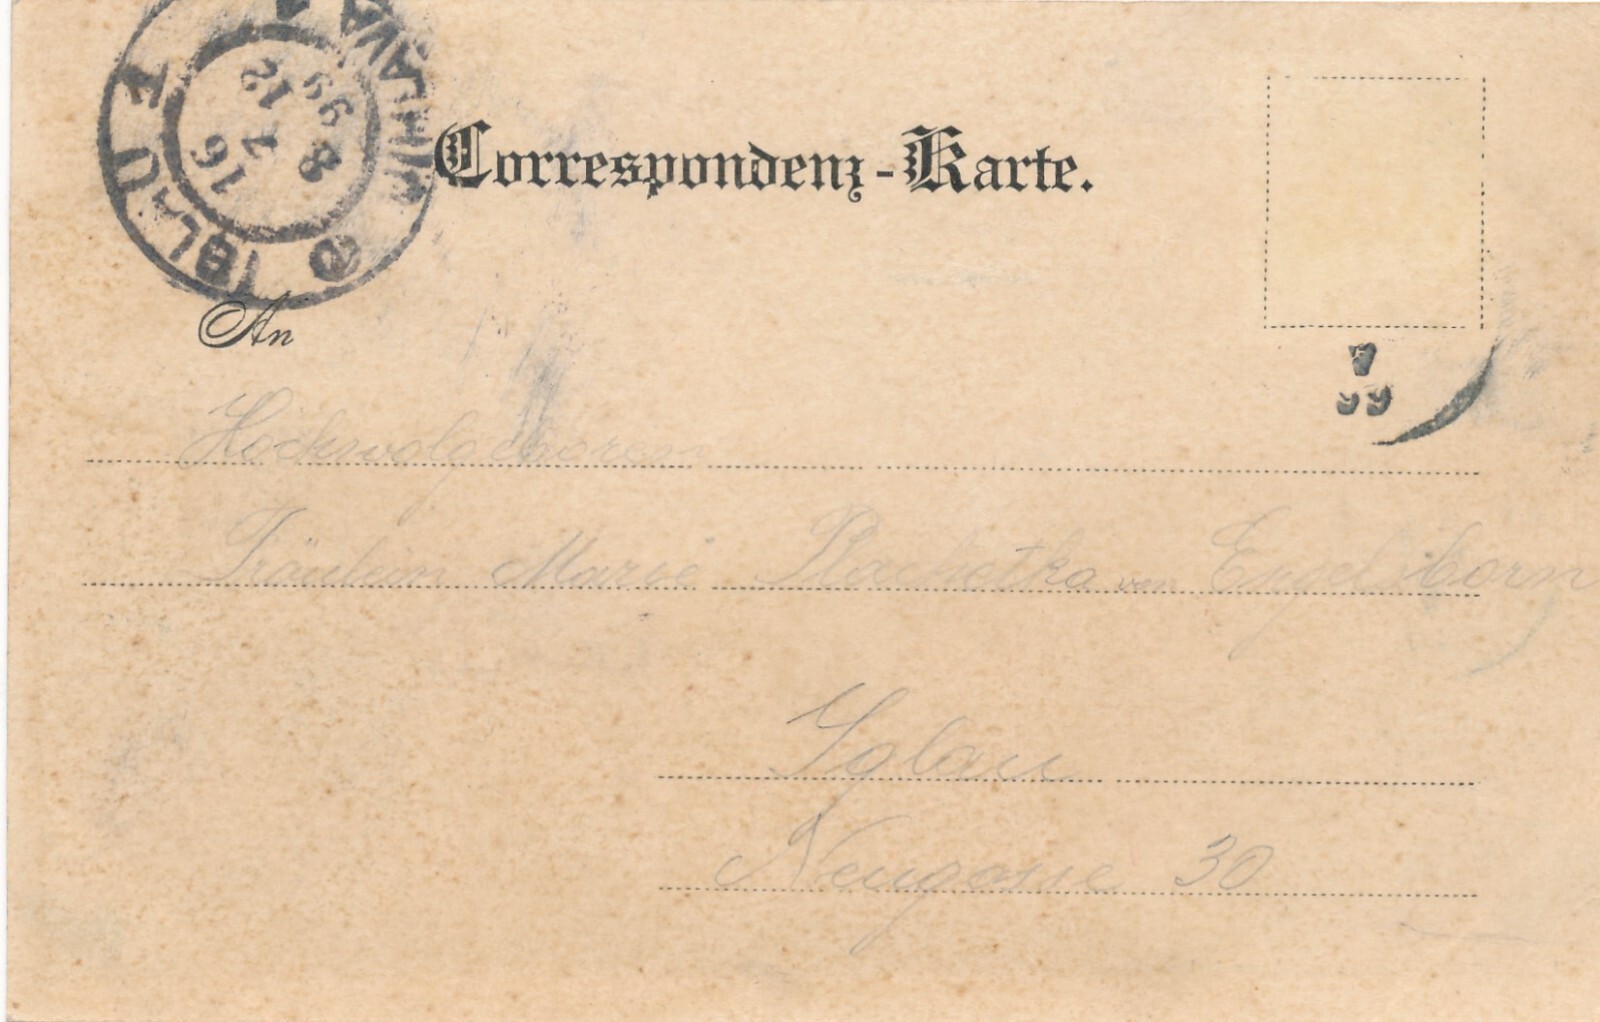 IGLAU 1
JIHLAVA 1
16
12
7
8
99
Correspondenz-Karte.
7
99
An
Hochwolgeboren
Fräulein Marie Plachetka von Engelsborn
Iglau
Neugasse 30